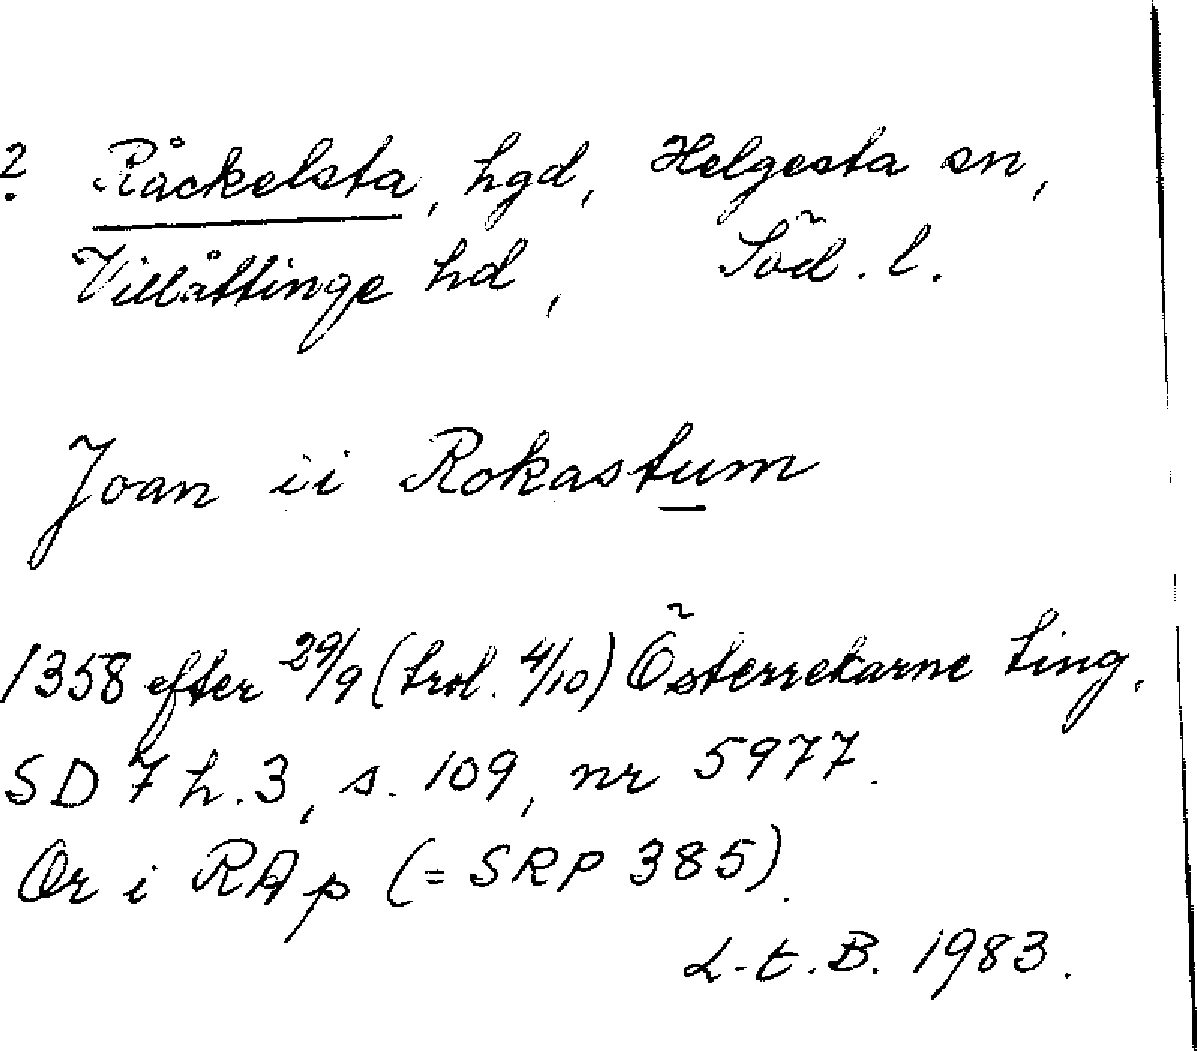 ? Råckelsta, hgd, Helgesta sn,
Villåttinge hd, Söd. l.
Joan ii Rokastum
1358 efter 29/9 (trol. 4/10) Österrekarne ting.
SD 7 h. 3, s. 109, nr 5977.
Or i RAp (= SRP 385).
L-t. B. 1983.